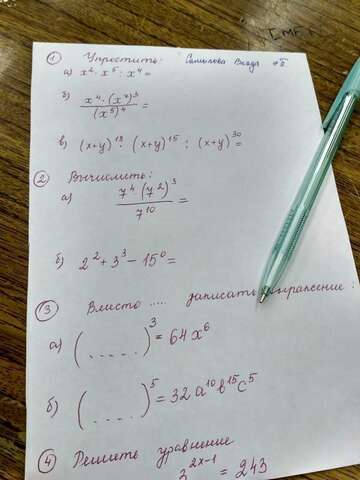 ① Упростить: Самылова Влада
а) x²· x⁵ : x⁴ =
б) x⁴ · (x⁷)³ / (x⁵)⁴ =
в) (x+y)¹⁸ : (x+y)¹⁵ : (x+y)³⁰ =
② Вычислить:
а) 7⁴ · (7²)³ / 7¹⁰ =
б) 2² + 3³ - 15⁰ =
③ Вместо .... записать выражение:
а) (.....)³ = 64x⁶
б) (....)⁵ = 32a¹⁰b¹⁵c⁵
④ Решить уравнение
3²ˣ⁻¹ = 243